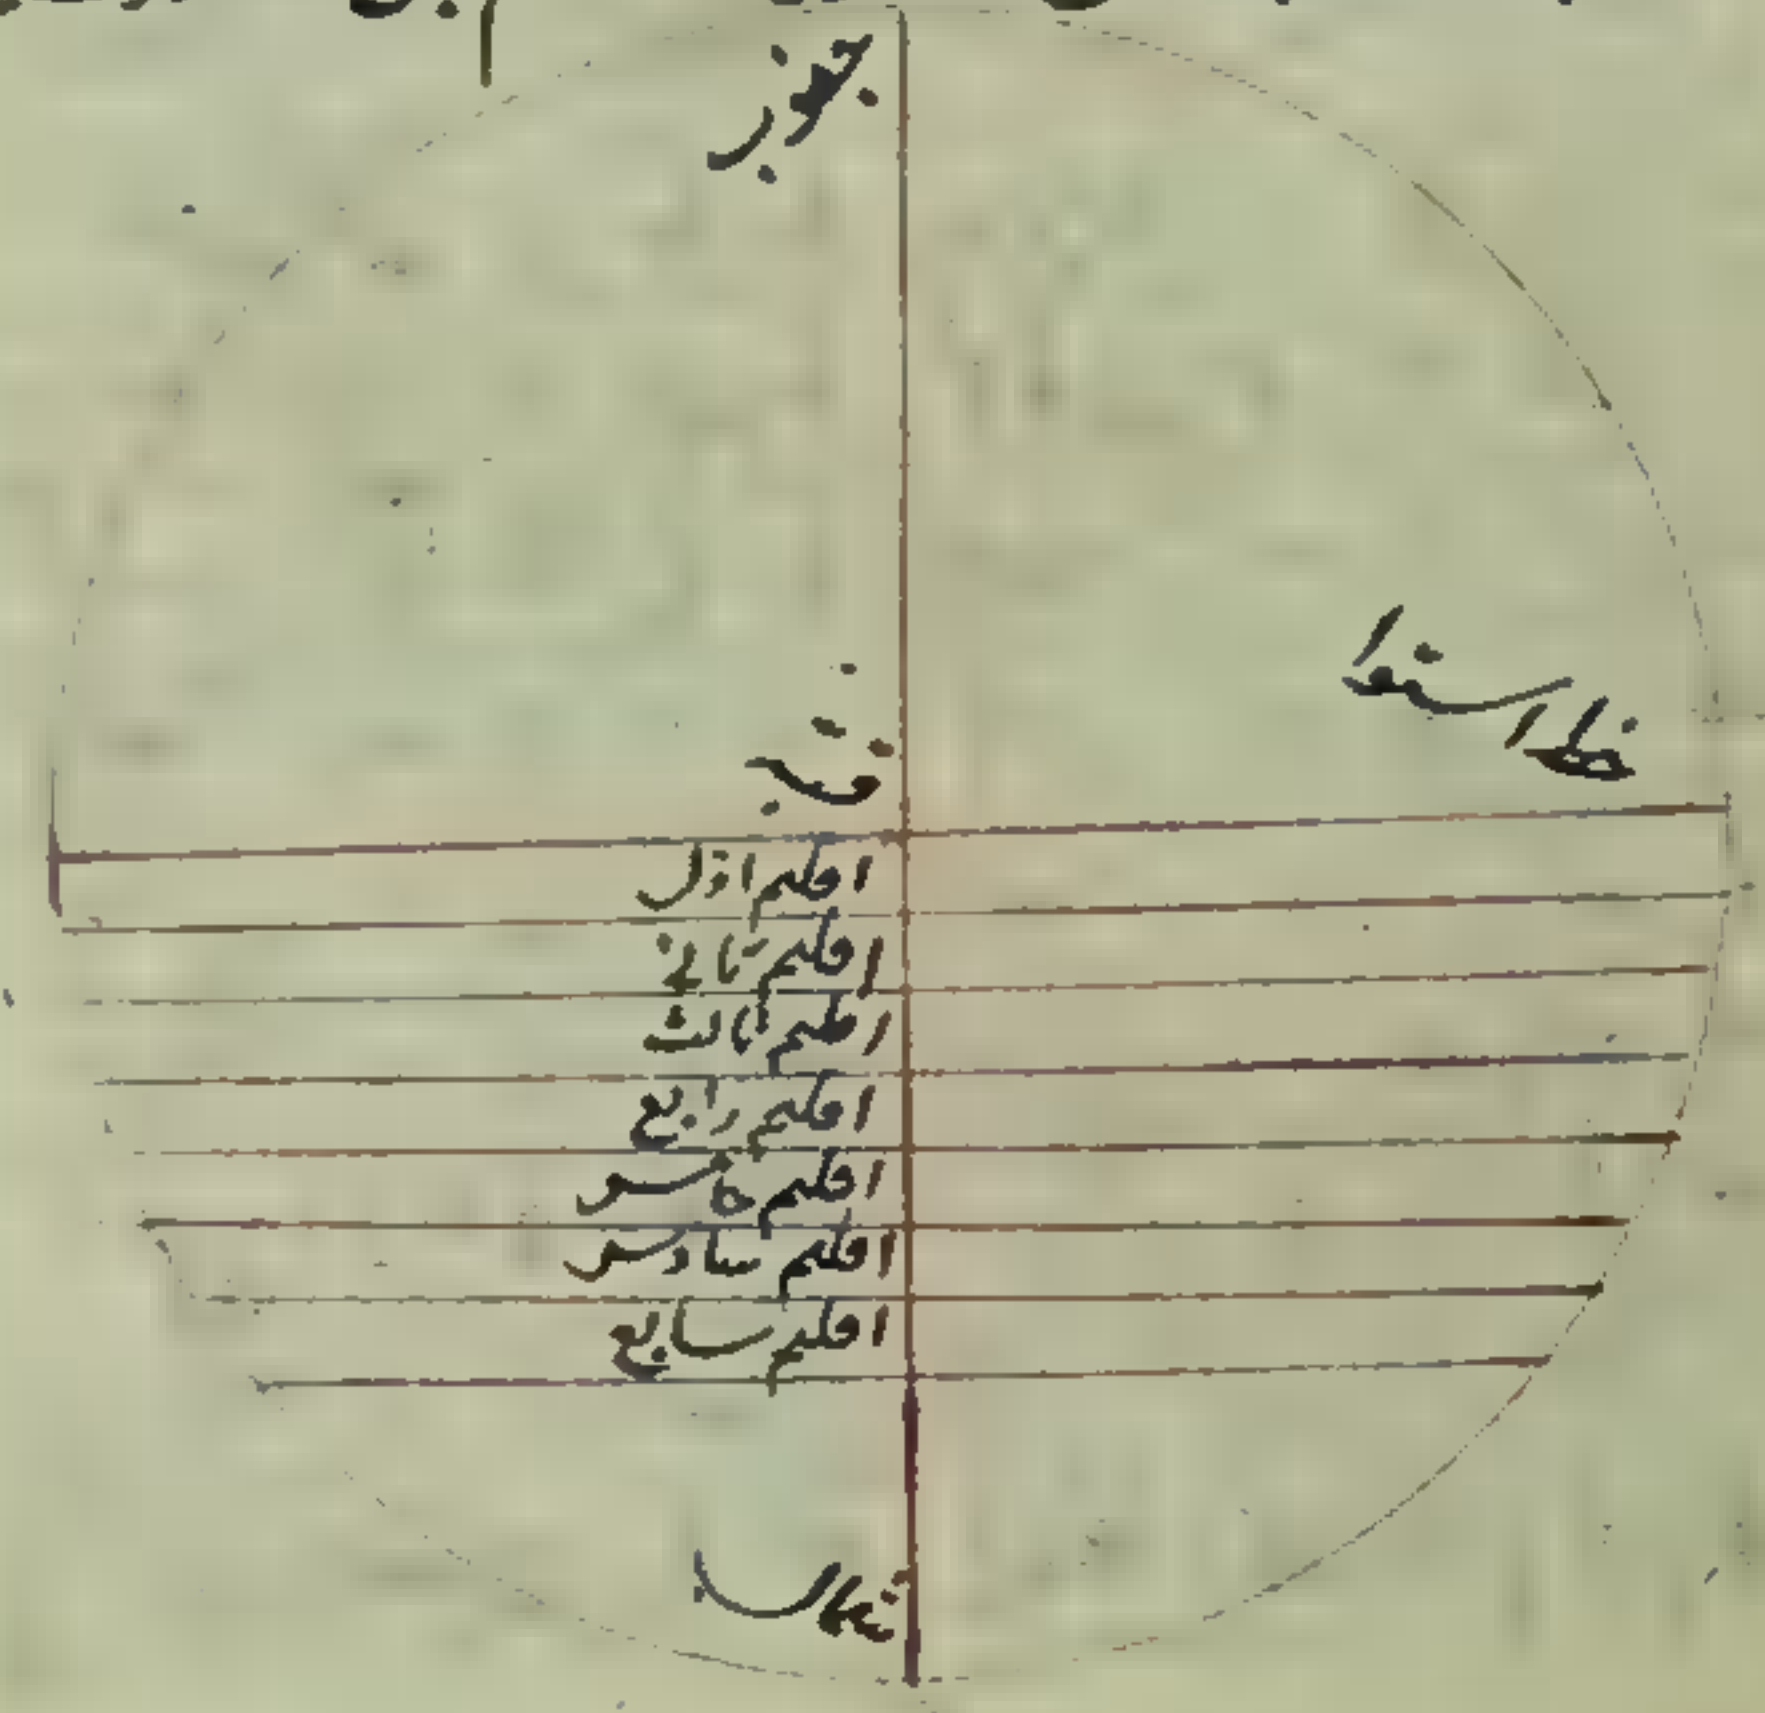 جنوب
خط استوا
قبة
اقلیم اول
اقلیم ثانی
اقلیم ثالث
اقلیم رابع
اقلیم خامس
اقلیم سادس
اقلیم سابع
شمال